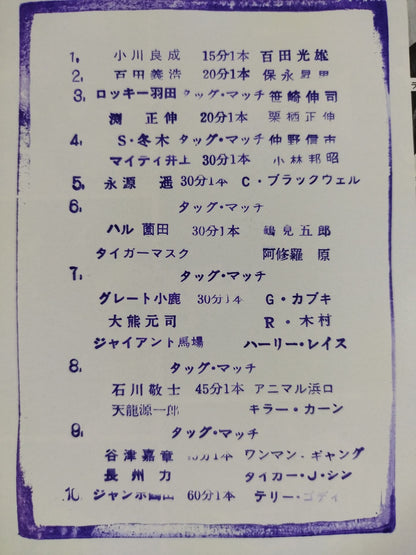 1, 小川良成 15分1本 百田光雄
2, 百田義浩 20分1本 保永昇男
3, ロッキー羽田 タッグ・マッチ 笹崎伸司
渕 正伸 20分1本 栗栖正伸
4, S・冬木 タッグ・マッチ 仲野信市
マイティ井上 30分1本 小林邦昭
5, 永源 遥 30分1本 C・ブラックウェル
6, タッグ・マッチ
ハル 薗田 30分1本 鶴見五郎
タイガーマスク 阿修羅 原
7, タッグ・マッチ
グレート小鹿 30分1本 G・カブキ
大熊元司 R・木村
ジャイアント馬場 ハーリー・レイス
8, タッグ・マッチ
石川敬士 45分1本 アニマル浜口
天龍源一郎 キラー・カーン
9, タッグ・マッチ
谷津嘉章 分1本 ワンマン・ギャング
長州 力 タイガー・J・シン
10, ジャンボ鶴田 60分1本 テリー・ゴディ